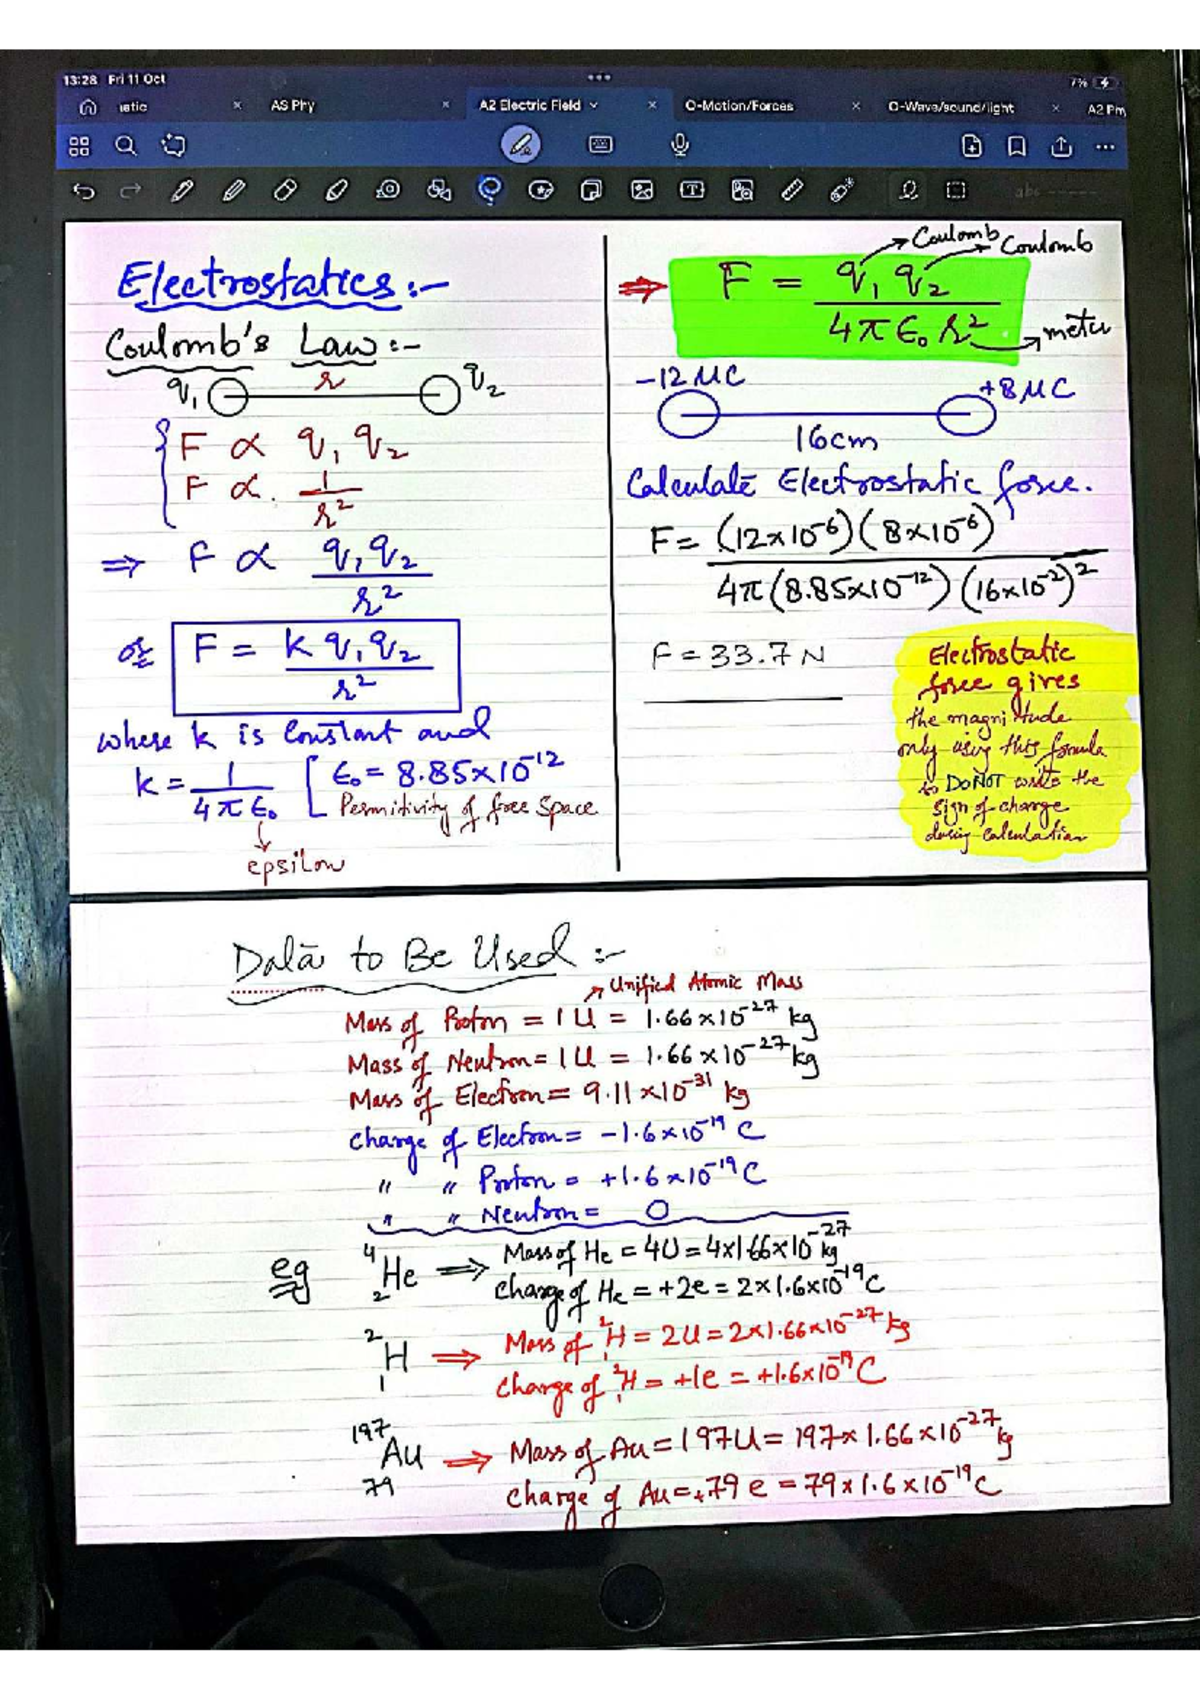 13:28 Fri 11 Oct
7%
AS Phy
A2 Electric Field
O-Motion/Forces
O-Wave/sound/light
A2 Pm
Electrostatics:-
Coulomb's Law:-
q₁ r q₂
F ∝ q₁ q₂
F ∝. 1/r²
⇒ F ∝ q₁q₂/r²
or F = k q₁q₂/r²
where k is Constant and
k = 1/4πϵ₀ [ ϵ₀ = 8.85×10⁻¹²
Permitivity of free Space
epsilon
⇒ F = q₁ q₂/4πϵ₀ r²
Coulomb Coulomb
meter
-12 μC +8 μC
16cm
Calculate Electrostatic force.
F = (12×10⁻⁶)(8×10⁻⁶)/4π(8.85×10⁻¹²)(16×10⁻²)²
F = 33.7 N
Electrostatic
force gives
the magnitude
only using this formula
so DO NOT write the
sign of charge
during calculation
Data to Be Used:-
Unified Atomic Mass
Mass of Proton = 1U = 1.66×10⁻²⁷ kg
Mass of Neutron = 1U = 1.66×10⁻²⁷ kg
Mass of Electron = 9.11×10⁻³¹ kg
Charge of Electron = -1.6×10⁻¹⁹ C
" " Proton = +1.6×10⁻¹⁹ C
" " Neutron = 0
eg ⁴₂He ⇒ Mass of He = 4U = 4×1.66×10⁻²⁷ kg
Charge of He = +2e = 2×1.6×10⁻¹⁹ C
²₁H ⇒ Mass of ²₁H = 2U = 2×1.66×10⁻²⁷ kg
Charge of ²₁H = +1e = +1.6×10⁻¹⁹ C
¹⁹⁷₇₉Au ⇒ Mass of Au = 197U = 197×1.66×10⁻²⁷ kg
Charge of Au = +79 e = 79×1.6×10⁻¹⁹ C